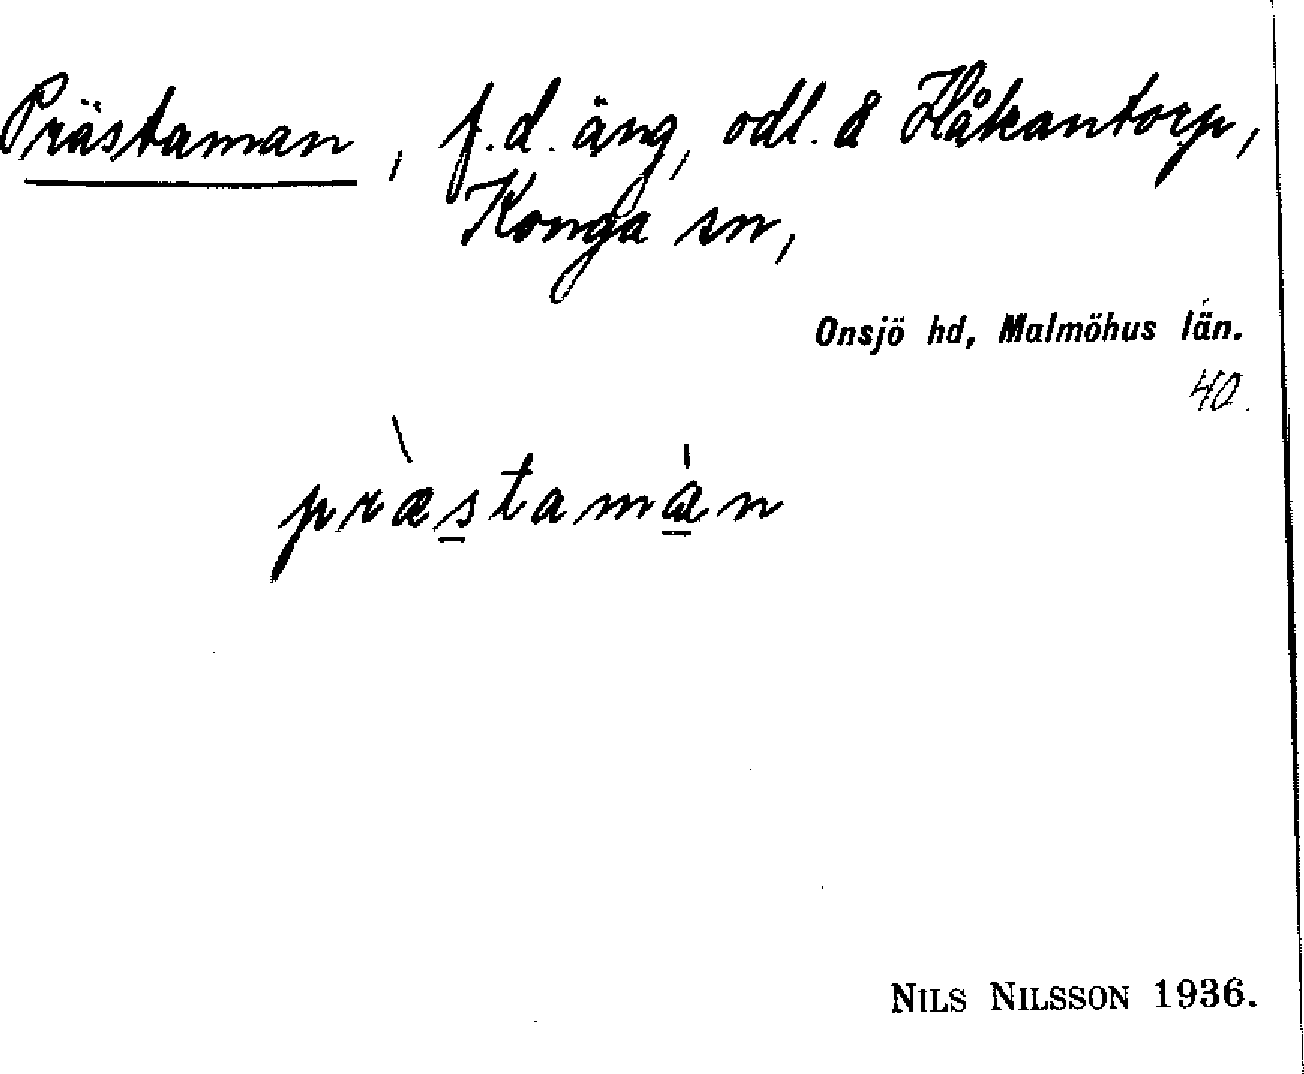 Prästaman, f.d. äng, odl. å Håkantorp,
Konga sn,
Onsjö hd, Malmöhus län.
40.
præstaman
NILS NILSSON 1936.